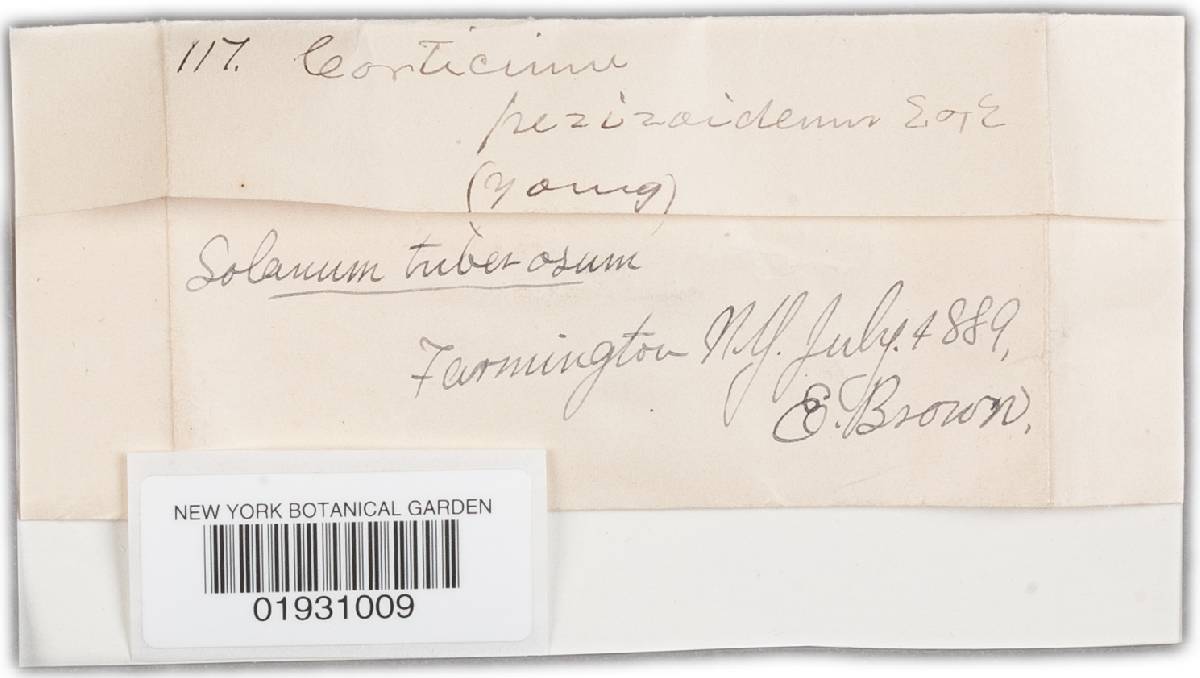 117. Corticium
pezizoideum E & E
(young)
Solanum tuberosum
Farmington N.Y. July. 1889,
E. Brown.
NEW YORK BOTANICAL GARDEN
01931009